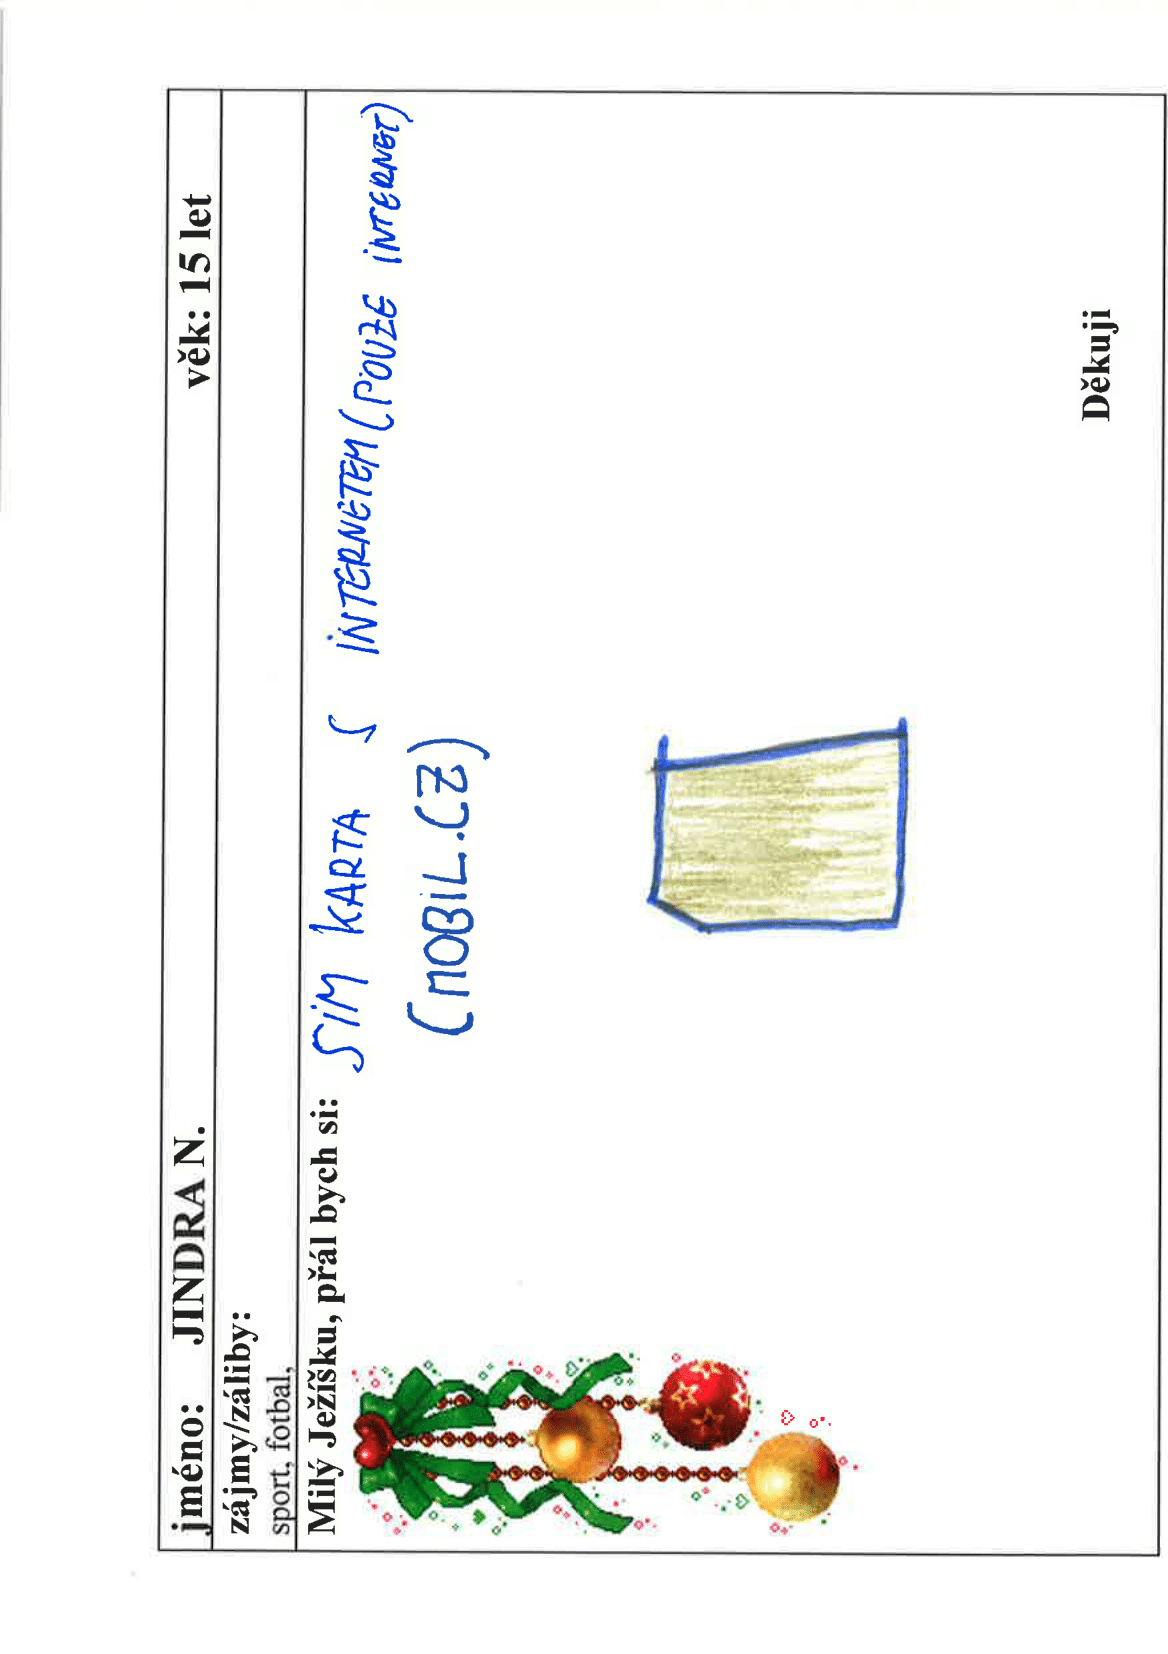 jméno: JINDRA N. věk: 15 let
zájmy/záliby:
sport, fotbal,
Milý Ježíšku, přál bych si: SIM KARTA S INTERNETEM (POUZE INTERNET)
(MOBIL.CZ)
Děkuji